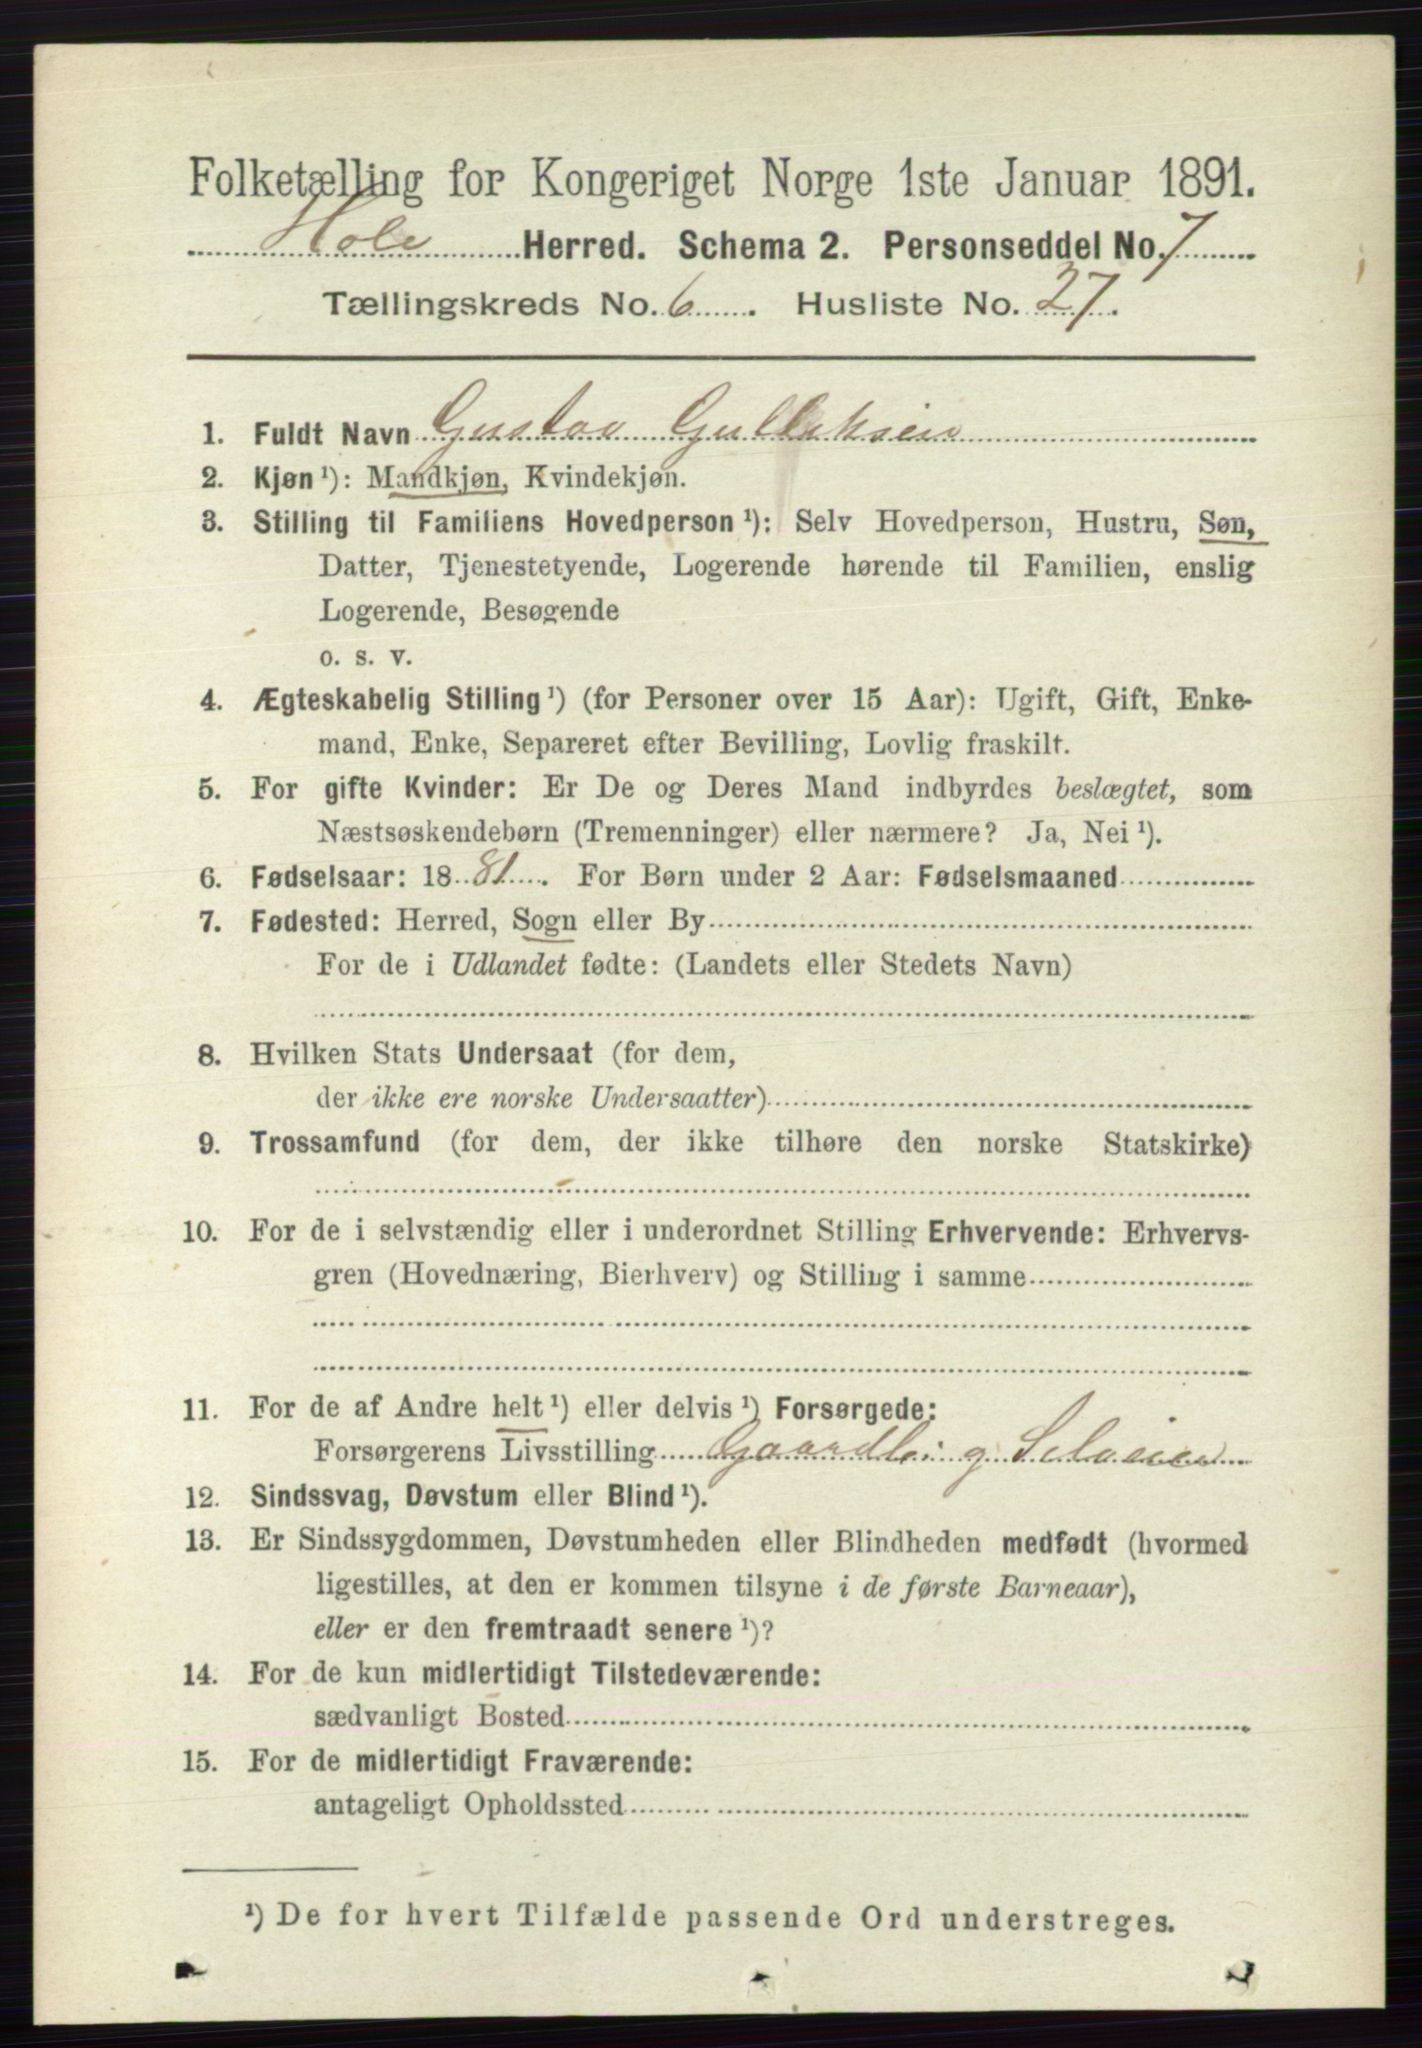 Folketælling for Kongeriget Norge 1ste Januar 1891.
Hole Herred. Schema 2. Personseddel No. 7
Tællingskreds No. 6. Husliste No. 27.
1. Fuldt Navn Gustav Gulliksen
2. Kjøn ¹): Mandkjøn, Kvindekjøn.
3. Stilling til Familiens Hovedperson ¹): Selv Hovedperson, Hustru, Søn,
Datter, Tjenestetyende, Logerende hørende til Familien, enslig
Logerende, Besøgende
o. s. v.
4. Ægteskabelig Stilling ¹) (for Personer over 15 Aar): Ugift, Gift, Enke-
mand, Enke, Separeret efter Bevilling, Lovlig fraskilt.
5. For gifte Kvinder: Er De og Deres Mand indbyrdes beslægtet, som
Næstsøskendebørn (Tremenninger) eller nærmere? Ja, Nei ¹).
6. Fødselsaar: 1881. For Børn under 2 Aar: Fødselsmaaned
7. Fødested: Herred, Sogn eller By
For de i Udlandet fødte: (Landets eller Stedets Navn)
8. Hvilken Stats Undersaat (for dem,
der ikke ere norske Undersaatter)
9. Trossamfund (for dem, der ikke tilhøre den norske Statskirke)
10. For de i selvstændig eller i underordnet Stilling Erhvervende: Erhvervs-
gren (Hovednæring, Bierhverv) og Stilling i samme
11. For de af Andre helt ¹) eller delvis ¹) Forsørgede:
Forsørgerens Livsstilling
12. Sindssvag, Døvstum eller Blind ¹).
13. Er Sindssygdommen, Døvstumheden eller Blindheden medfødt (hvormed
ligestilles, at den er kommen tilsyne i de første Barneaar),
eller er den fremtraadt senere ¹)?
14. For de kun midlertidigt Tilstedeværende:
sædvanligt Bosted
15. For de midlertidigt Fraværende:
antageligt Opholdssted
¹) De for hvert Tilfælde passende Ord understreges.